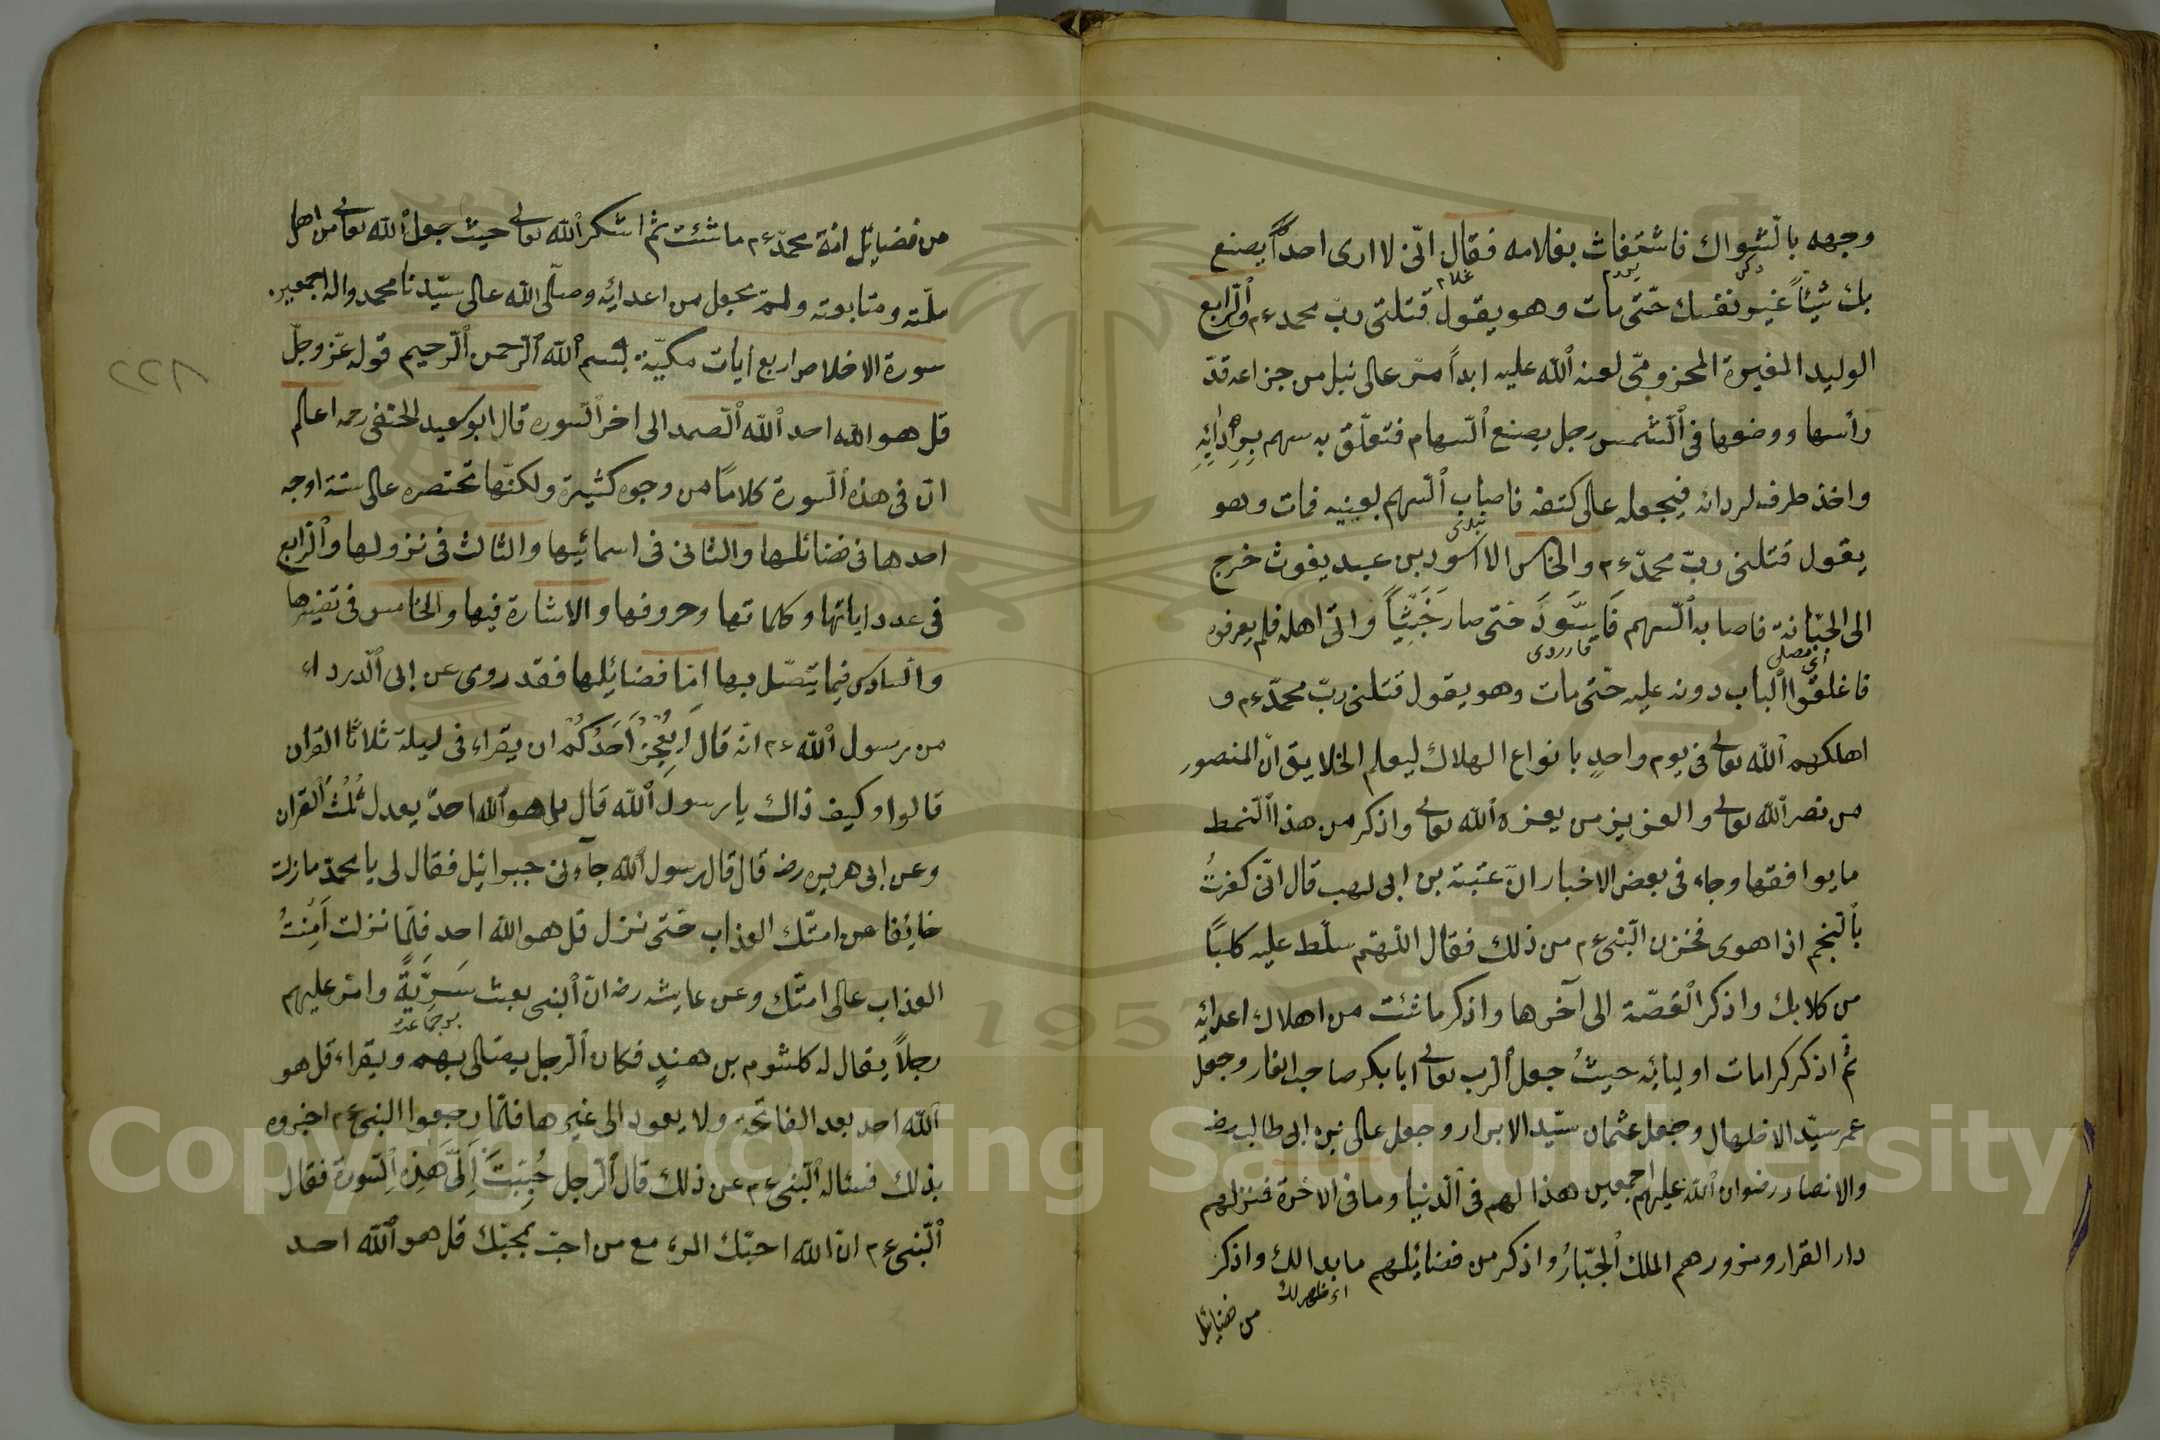 وجهه بالشواك فاستغاث بغلامه فقال انّى لا ارى احداً يصنع
بك شيئاً غير نفسك حتّى مات وهو يقول قتلنى ربّ محمد ء م والرابع
الوليد المغيرة المخزومّى لعنه الله عليه ابداً مرّ على نبل من جزاعه قدّ
رأسها ووضعها فى الشمس رجل يصنع السهام فتعلّق به سهم بردائه
واخذ طرف لردائه فيجعله على كتفه فاصاب السهم لعينيه فمات وهو
يقول قتلنى ربّ محمدّ ء م والخامس الاسود بن عبد يغوث خرج
الى الجبّانة فاصابه السهم فاسّودَ حتى صار حَبَشِيّاً واتى اهله فلم يعرفوه
اى مصلى
فاغلقوّا الباب دونه عليه حتّى مات وهو يقول قتلنى ربّ محمدّ ء م و
اهلكهم الله تعالى فى يوم واحدٍ بانواع الهلاك ليعلم الخلايق انّ المنصور
من نصر الله تعالى والعزيز من يعزه الله تعالى واذكر من هذا النمط
ما يوافقها وجاء فى بعض الاخبار انّ عتبة بن ابى لهب قال انّى كفرتُ
بالنجم اذا هوى فحزن النّبى ء م من ذلك فقال اللّهمّ سلّط عليه كلبًا
من كلابك واذكر القصّة الى آخرها واذكر ما شئت من اهلاك اعدائه
ثمّ اذكر كرامات اوليائه حيثُ جعل الرب تعالى ابا بكر صاحب الغار وجعل
عمر سيّد الافلهال وجعل عثمان سيّد الابرار وجعل على بن ابى طالب رضه
والانصار رضوان الله عليهم اجمعين هذا لهم فى الدنيا وما فى الاخرة فنزلهم
دار القرار ومزورهم الملك الجبّارُ واذكر من فضائلهم ما بدا لك واذكر
اى ظهر لك
من فضائل
من فضايل امّة محمدّ ء م ما شئت ثم اشكر الله تعالى حيث جعل الله تعالى من اهل
ملّته ومتابعته ولم يجعل من اعدائه وصلّى الله على سيّدنا محمد واله اجمعين.
سورة الاخلاص اربع ايات مكيّة بسم الله الرّحمن الرّحيم قوله عزّ وجلّ
قل هو الله احد الله الصمد الى اخر السوره قال ابو سعيد الحنفى رحمه اعلم
انّ فى هذه السورة كلامًا من وجوه كثيرة ولكنّها تختصره على ستة اوجه
احدها فى فضائلها والثانى فى اسمائيها والثالث فى نزولها والرابع
فى عدد اياتها وكلماتها وحروفها والاشارة فيها والخامس فى تفسيرها
والسادس فيما يتصّل بها امّا فضائلها فقد روى عن ابى الدرداء
من رسول الله ء م انه قال ايعجز احدكم ان يقراء فى ليلة ثلاثا القران
قالوا وكيف ذاك يا رسول الله قال قل هو الله احدّ يعدل ثلث القران
وعن ابى هريره رضه قال قال رسول الله جاءنى جبرائيل فقال لى يا محمدّ ما زلت
خائفا عن امتّك العذاب حتى نزل قل هو الله احد فلمّا نزلت اَمِنْتُ
العذاب على امتّك وعن عايشه رضه انّ النبى بعث سَرِيَّةً وامر عليهم
رجلاً يقال له كلثوم بن هندٍ فكان الرجل يصلى بهم ويقراء قل هو
الله احد بعد الفاتحة ولا يعود الى غيرها فلمّا رجعوا النبى ء م اخبروه
بذلك فسئاله النّبى ء م عن ذلك قال الرجل حُبِّبَتْ اِلَىَّ هَذِهِ السّورة فقال
النّبى ء م انّ الله احبّك المرء مع من احبّ بحبّك قل هو الله احد